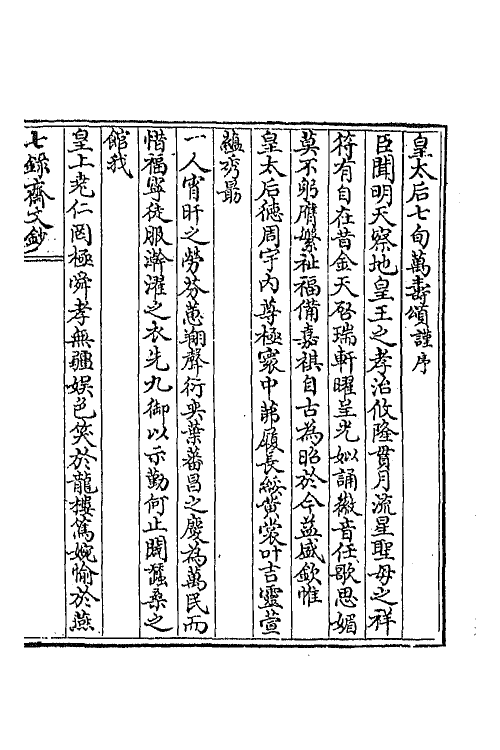 皇太后七旬萬壽頌謹序
臣聞明天察地皇王之孝治攸隆貫月流星聖母之祥
符有自在昔金天啓瑞軒曜呈光姒誦徽音任歌思媚
莫不躬膺繁祉福備嘉祺自古為昭於今益盛欽惟
皇太后德周宇內尊極寰中茀履長綏黄裳叶吉靈萱
蘊秀勗
一人宵旰之勞芬蕙翔聲衍奕葉蕃昌之慶為萬民而
惜福寧徒服澣濯之衣先九御以示勤何止闢蠶桑之
館我
皇上堯仁罔極舜孝無疆娛色笑於龍樓篤婉愉於燕
七錄齋文鈔